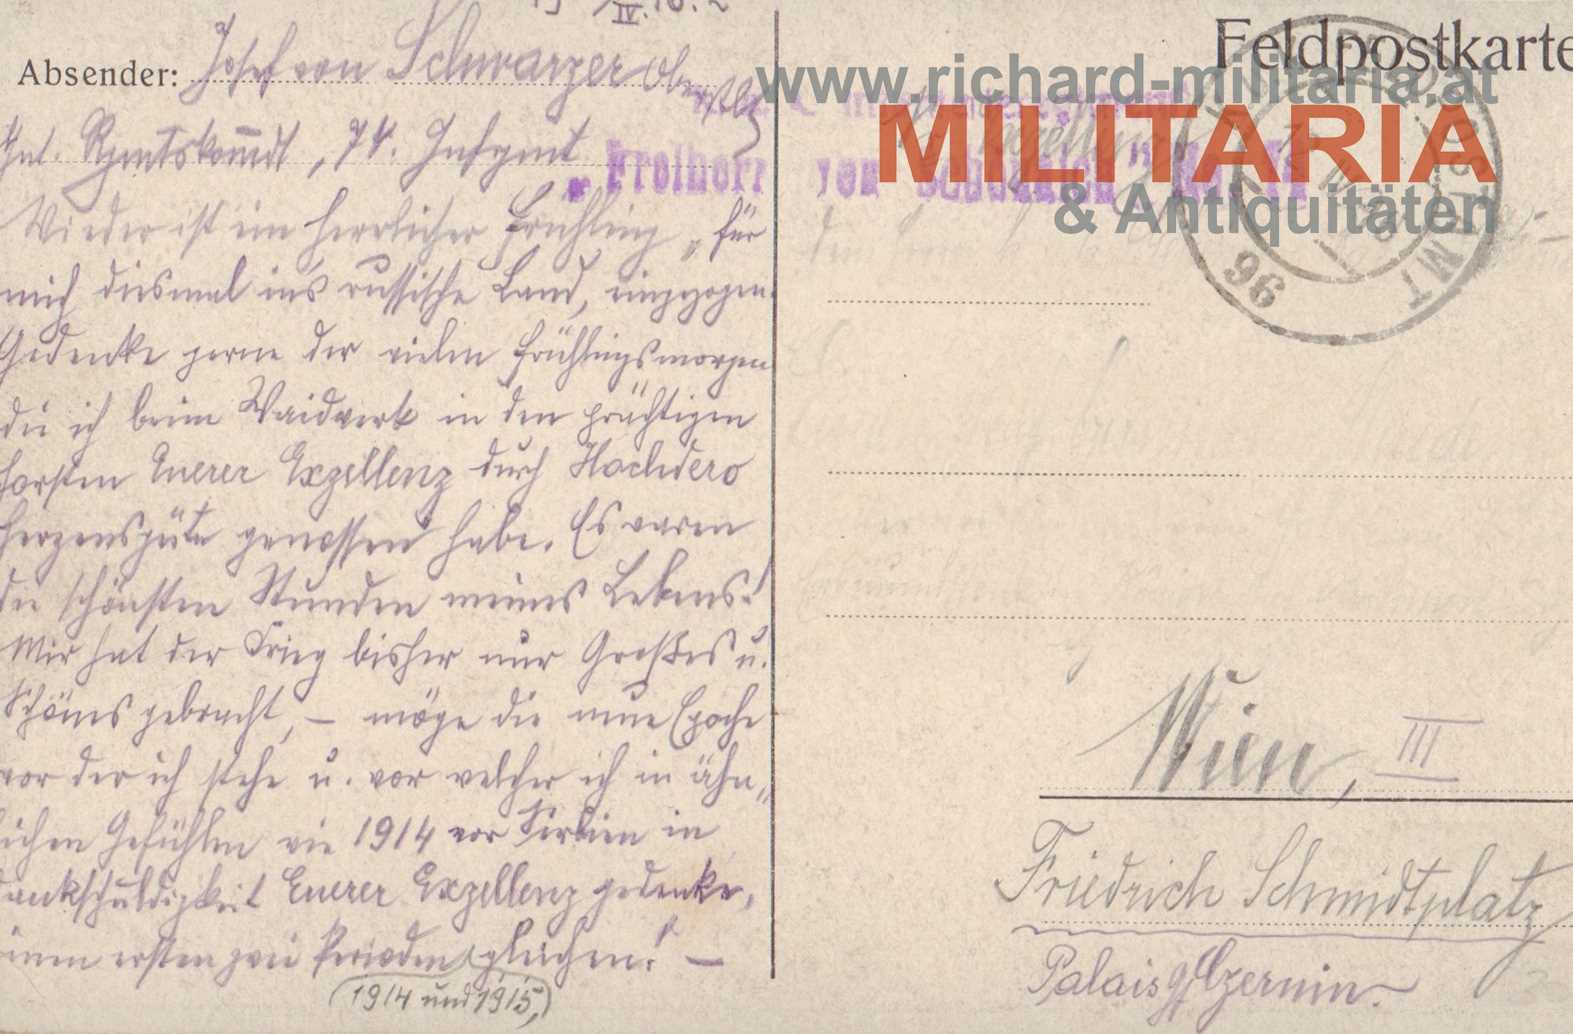 IV. 16.
Absender: Josef von Schwarzer Oberstlt
Int. Rgmtskomdt, 74. Infrgmt
Wieder ist ein herrlicher Frühling „für
mich diesmal in's russische Land, eingezogen.
Gedenke gerne der vielen Frühlingsmorgen
die ich beim Waidwerk in den prächtigen
Forsten Euerer Exzellenz durch Hochdero
Herzensgüte genossen habe. Es waren
die schönsten Stunden meines Lebens!
Mir hat der Krieg bisher nur Großes u.
Schönes gebracht, – möge die neue Epoche
vor der ich stehe u. vor welcher ich in ähn„
lichen Gefühlen wie 1914 vor Serbien in
Dankschuldigkeit Euerer Exzellenz gedenke,
einen ersten zwei Perioden gleichen! –
(1914 und 1915,)
Feldpostkarte
www.richard-militaria.at
MILITARIA
& Antiquitäten
Freiherr von Schönaich
96
Wien, III
Friedrich Schmidtplatz
Palais Czernin.